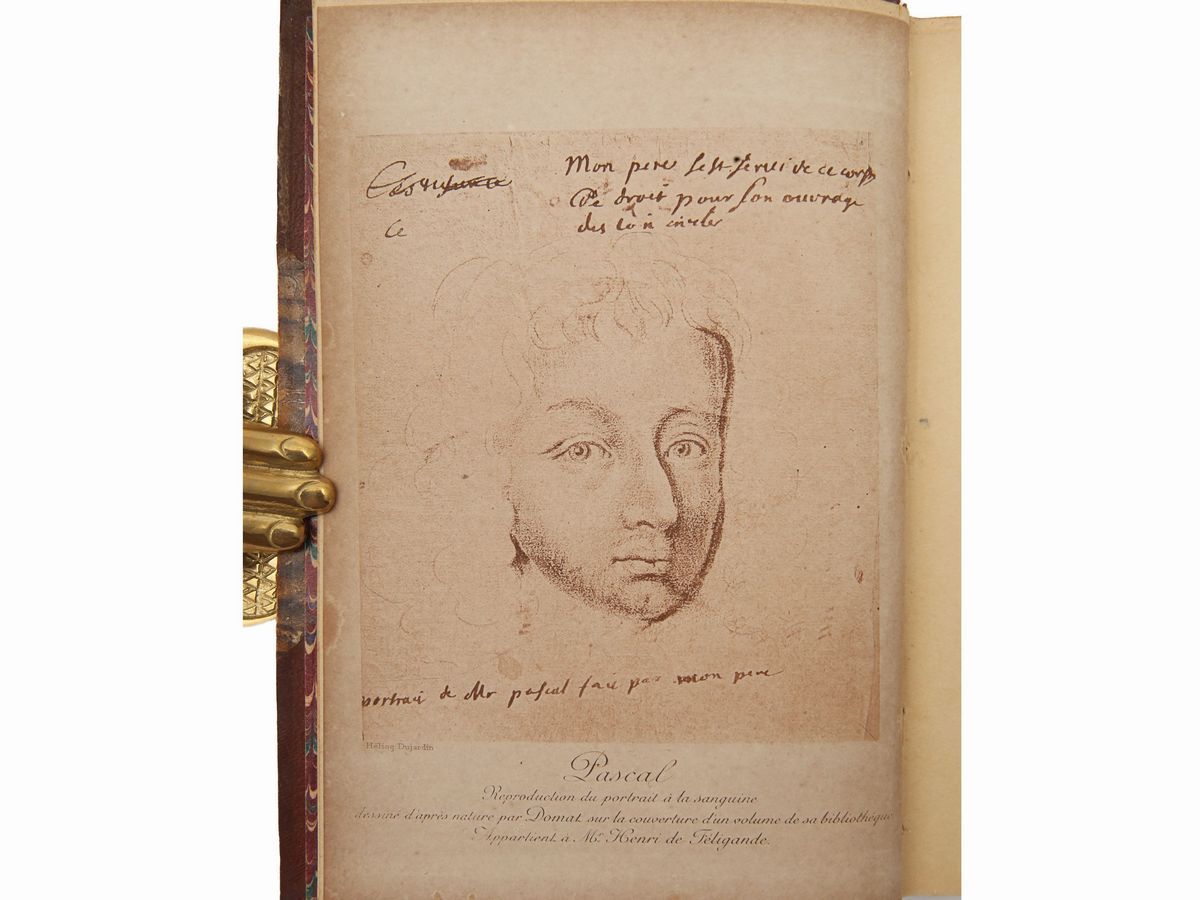 Ce
Mon pere sest servi de ce corps
De droit pour son ouvrage
des loix civiles
portrait de Mr pascal fait par mon pere
Héliog: Dujardin
Pascal
Reproduction du portrait à la sanguine
dessiné d'après nature par Domat sur la couverture d'un volume de sa bibliothèque
Appartient à Mr. Henri de Féligande.